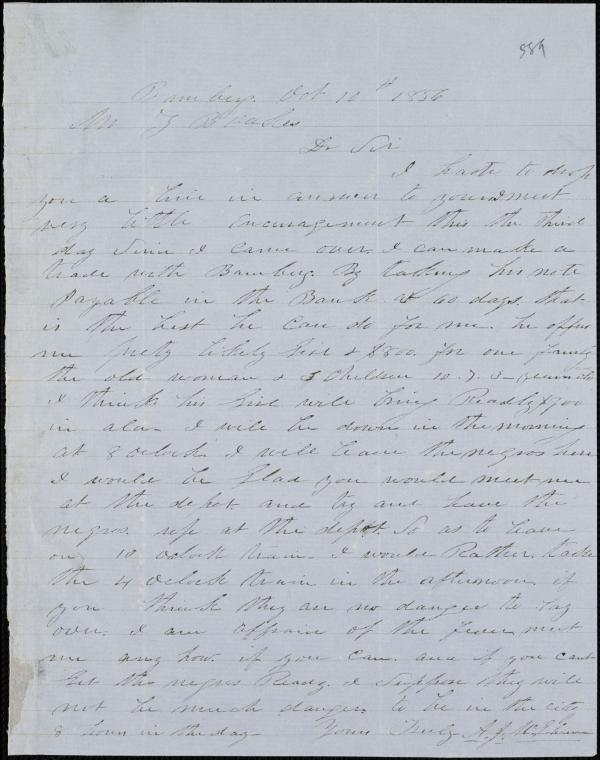 889
Bambeys. Oct 10th 1856
Mr Z B Oakes
Dr Sir
I haste to drop
you a line in answer to yours meet
very little encuragement this the third
day Since I came over. I can make a
trade with Bambey. By taking his note
Payable in the Bank at 60 days. that
is the best he can do for me. he offers
me pretty likely Girl & $800. for one family
the old woman & 3 Children 10. 7. 3
I think his Girl will bring Readly $900
in ala. I will be down in the morning
at 8 oclock. I will leave the negros here
I would be Glad you would meet me
at the depot and try and have the
negros. up at the depot. So as to leave
on 10 oclock train. I would Rather take
the 4 oclock train in the afternoon if
you think they are no danger to lay
over. I am affrain of the fever meet
me any how. if you can. and if you cant
Get the negros Ready. I Suppose they will
not be much danger. to be in the city
8 hours in the day. Yours Truly A. J. McElveen